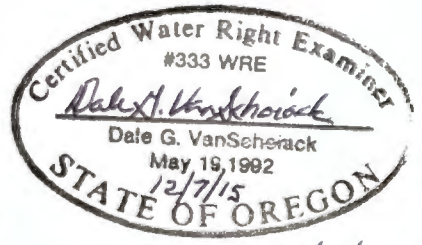 Certified Water Right Examiner
#333 WRE
Dale G. VanScheiack
Dale G. VanScheiack
May 19,1992
12/7/15
STATE OF OREGON